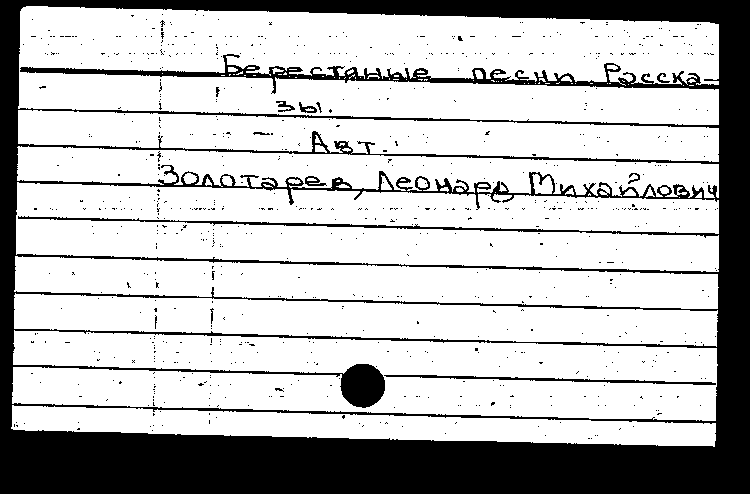 Берестяные песни Расска-
зы.
Авт.:
Золотарев, Леонард Михайлович